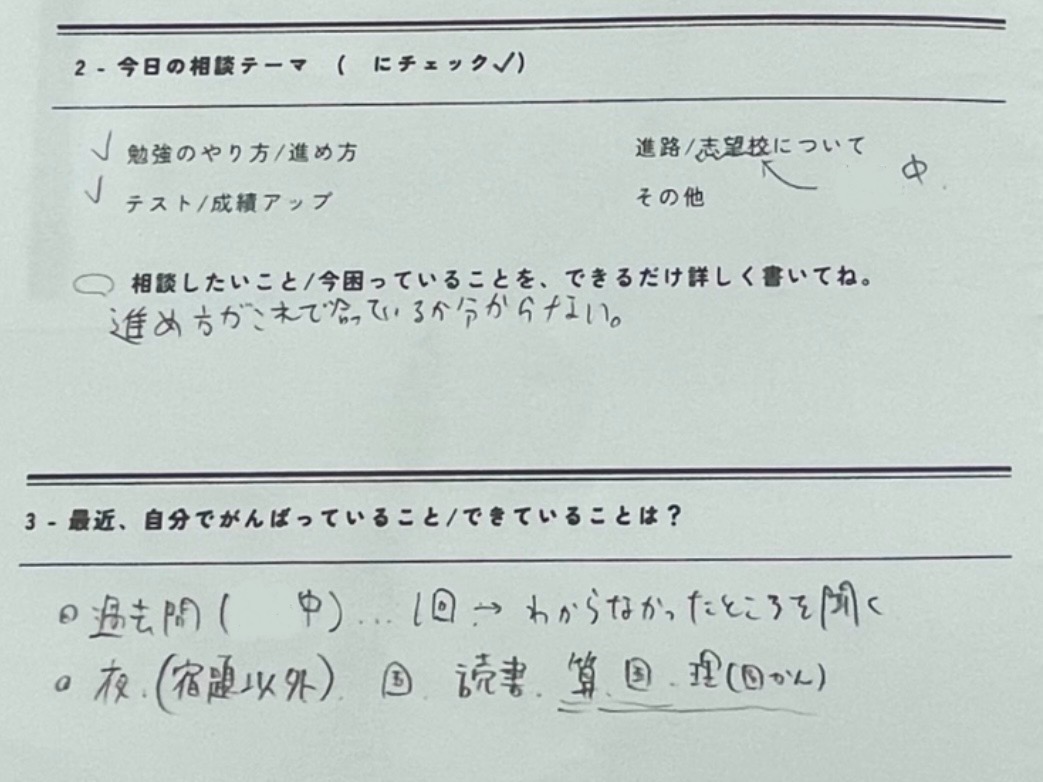 2 - 今日の相談テーマ ( にチェック✓)
✓ 勉強のやり方/進め方
進路/志望校について
中
✓ テスト/成績アップ
その他
相談したいこと/今困っていることを、できるだけ詳しく書いてね。
進め方がこれで合っているか分からない。
3 - 最近、自分でがんばっていること/できていることは？
過去問( 中)... 1回→わからなかったところを聞く
夜.(宿題以外). 国. 読書. 算. 国. 理(図かん)